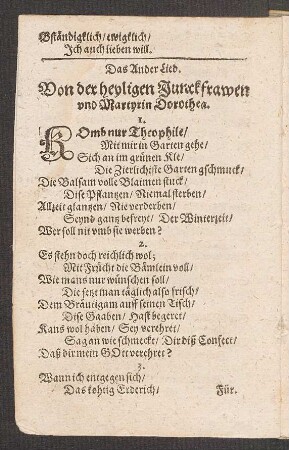 Bständigklich/ ewigklich/
Ich auch lieben will.
Das Ander Lied.
Von der heyligen Junckfrawen
vnd Martyrin Dorothea.
1.
KOmb nur Theophile/
Mit mir in Garten gehe/
Sich an im grünen Kle/
Die Zierlichiste Garten gschmuck/
Die Balsam volle Blaimen stuck/
Dise Pflantzen/ Niemal sterben/
Allzeit glantzen/ Nie verderben/
Seynd gantz befreyt/ Der Winterzeit/
Wer soll nit vmb sie werben?
2.
Es stehn doch reichlich wol;
Mit Frücht die Bämlein voll/
Wie mans nur wünschen soll/
Die setzt man täglich also frisch/
Dem Bräutigam auff seinen Tisch/
Dise Gaaben/ Hast begeret/
Kans wol haben/ Sey verehret/
Sag an wie schmeckt/ Dir diß Confect/
Daß dir mein GOtt verehret?
3.
Wann ich entgegen sich/
Das kohtig Erderich/
Für.